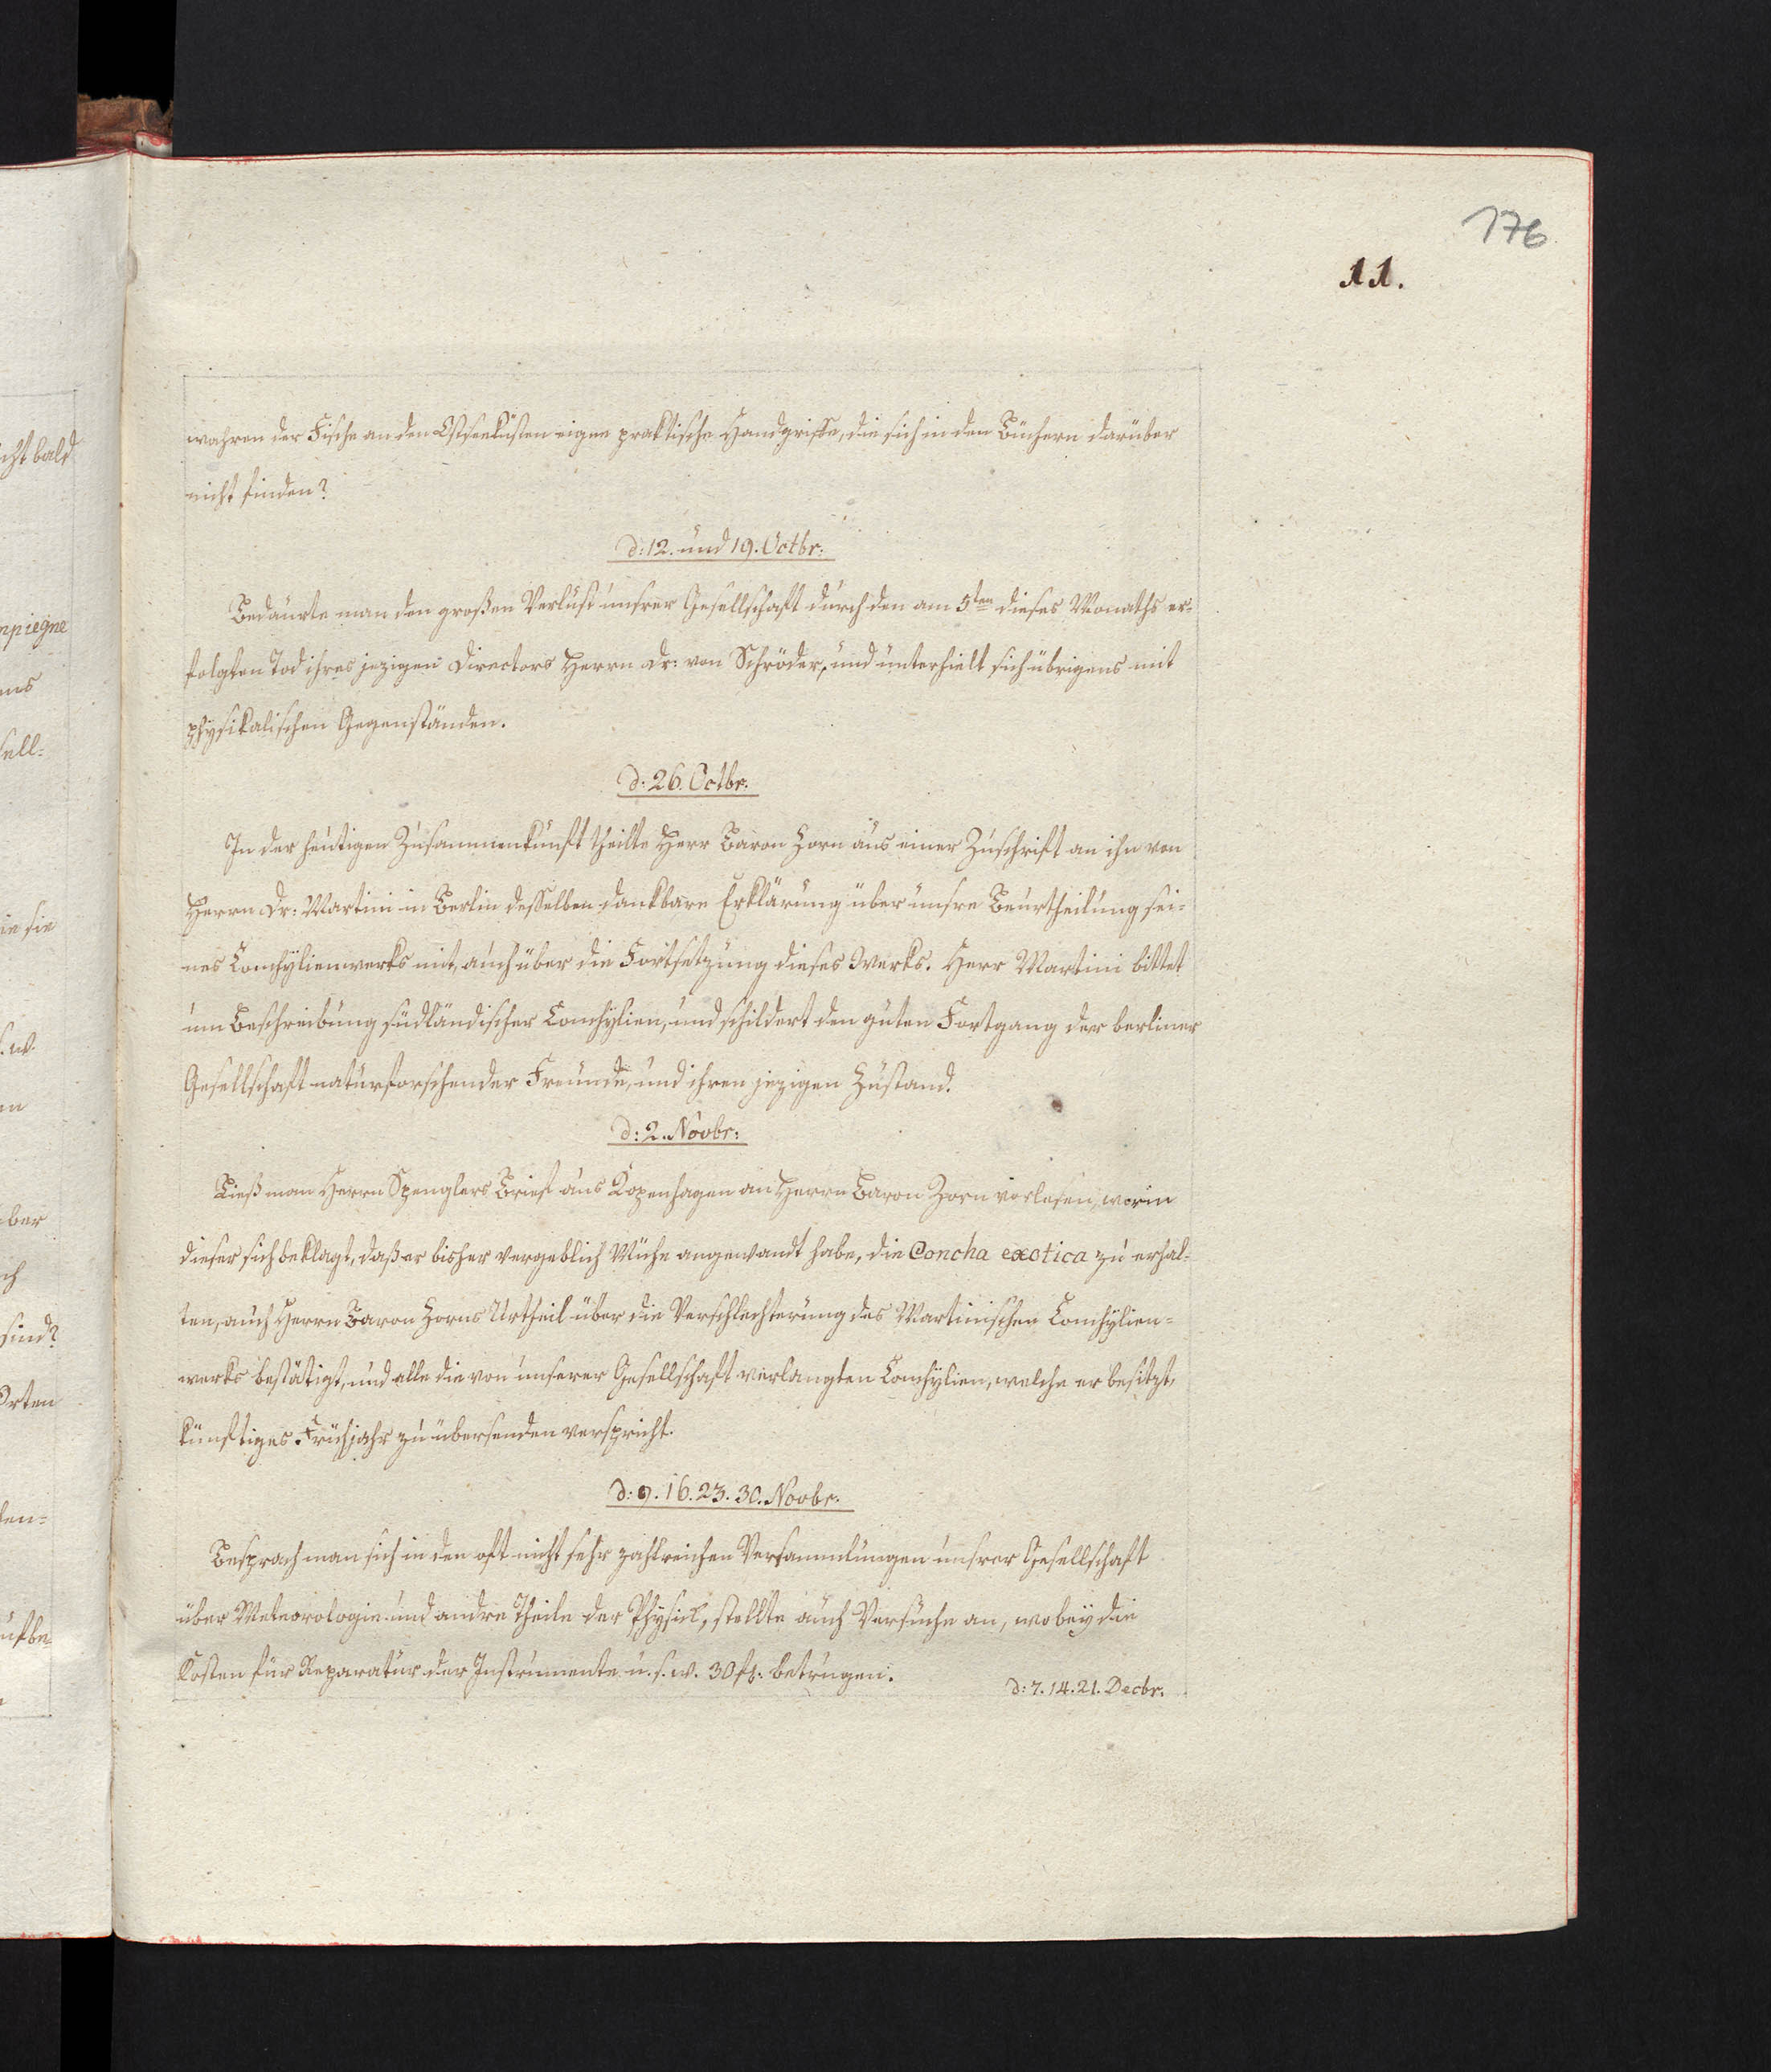 176
11.
wahren der Fische an den Ostseeküsten eigne praktische Handgriffe, die sich in den Büchern darüber
nicht finden?
d: 12. und 19. Octbr:
Bedaurte man den großen Verlust unsrer Gesellschaft durch den am 5ten dieses Monaths er-
folgten Tod ihres jezigen Directors Herrn Dr: von Schröder, und unterhielt sich übrigens mit
physikalischen Gegenständen.
d: 26. Octbr.
In der heutigen Zusammenkunft theilte Herr Baron Zorn aus einer Zuschrift an ihn von
Herrn Dr: Martini in Berlin desselben dankbare Erklärung über unsre Beurtheilung sei-
nes Conchylienwerks mit, auch über die Fortsetzung dieses Werks. Herr Martini bittet
um Beschreibung südländischer Conchylien, und schildert den guten Fortgang der berliner
Gesellschaft naturforschender Freunde, und ihren jezigen Zustand.
d: 2. Novbr:
Ließ man Herrn Spenglers Brief aus Kopenhagen an Herrn Baron Zorn vorlesen, worin
dieser sich beklagt, daß er bisher vergeblich Mühe angewandt habe, die Concha exotica zu erhal-
ten, auch Herrn Baron Zorns Urtheil über die Verschlechterung des Martinischen Conchylien-
werks bestätigt, und alle die von unserer Gesellschaft verlangten Conchylien, welche er besitzt,
künftiges Frühjahr zu übersenden verspricht.
d: 9. 16. 23. 30. Novbr.
Besprach man sich in den oft nicht sehr zahlreichen Versammlungen unsrer Gesellschaft
über Meteorologie und andre Theile der Physick, stellte auch Versuche an, wobey die
Kosten für Reparatur der Instrumente u. s. w. 30 fl: betrugen.
d: 7. 14. 21. Decbr.